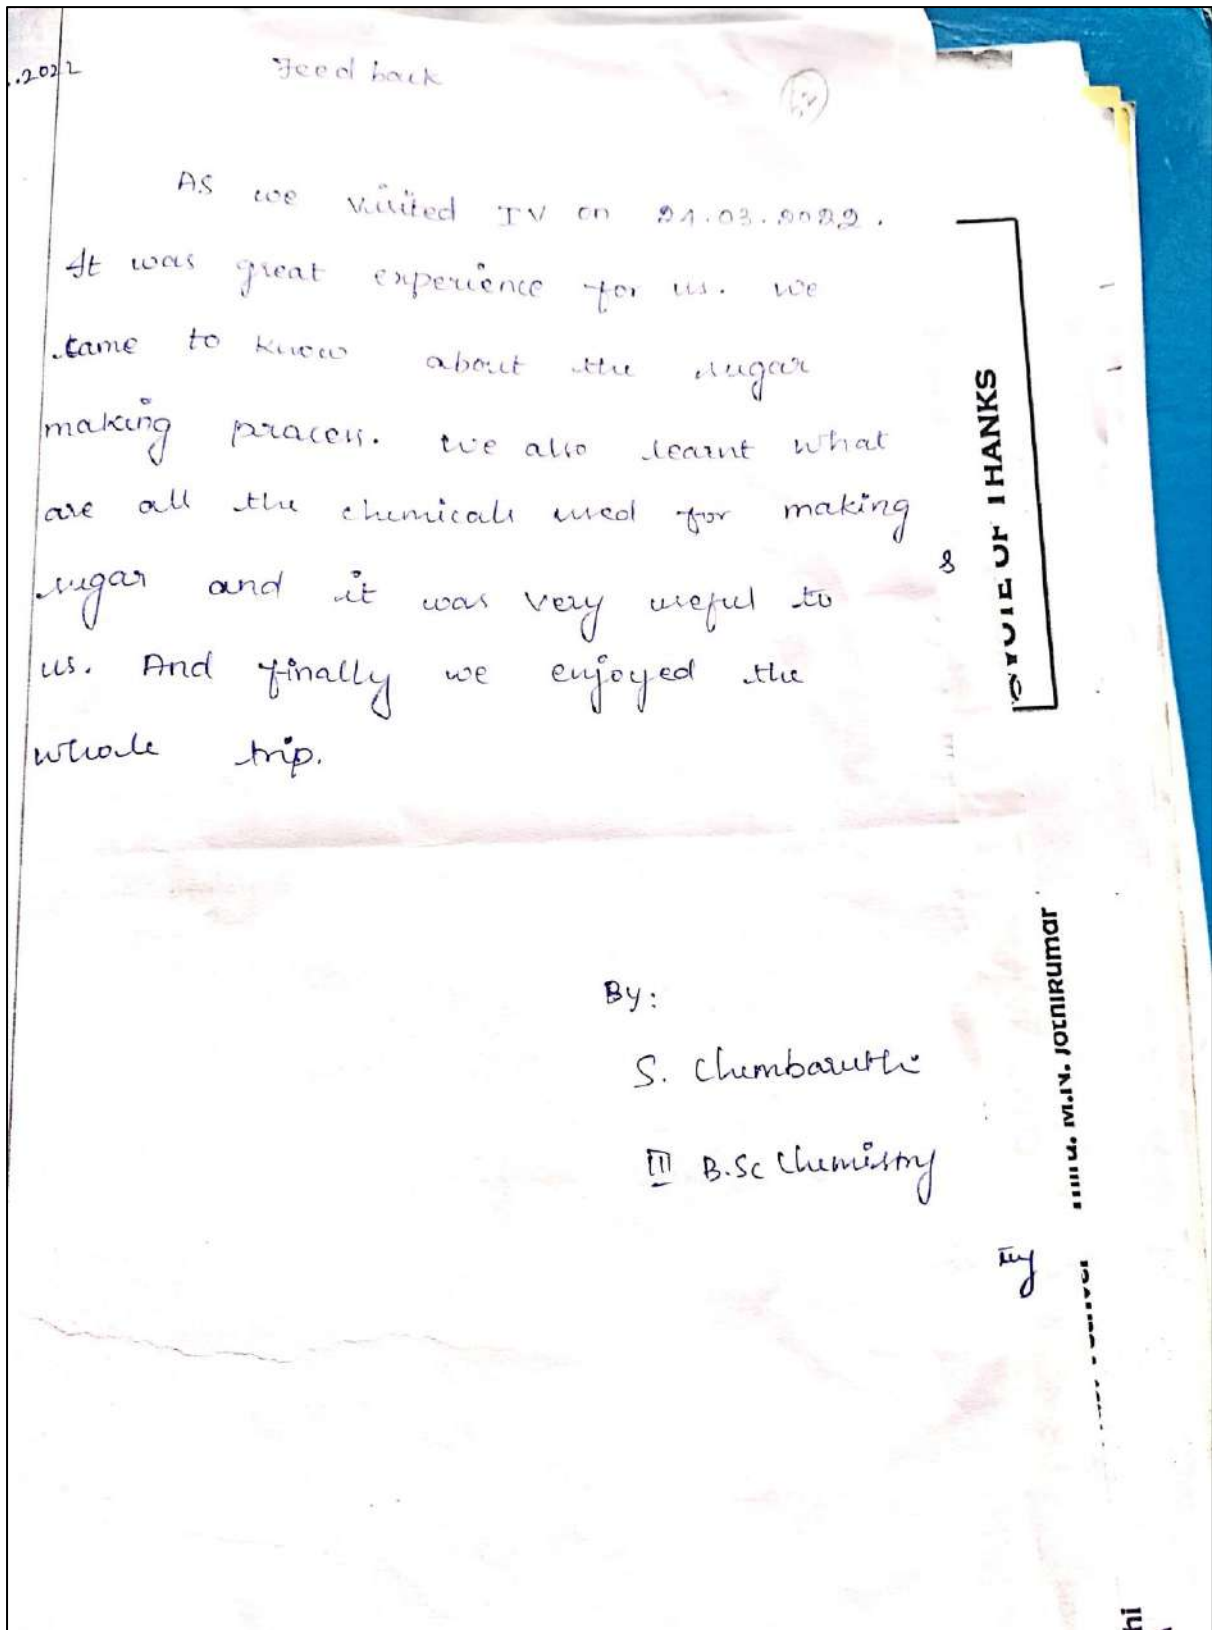 ..2022
Feed back
As we visited IV on 21.03.2022.
It was great experience for us. we
came to know about the sugar
making process. we also learnt what
are all the chemicals used for making
sugar and it was very useful to
us. And finally we enjoyed the
whole trip.
By:
S. Chembaruthi
III B.Sc Chemistry
VOTE OF THANKS
M.N. Jothikumar
hi